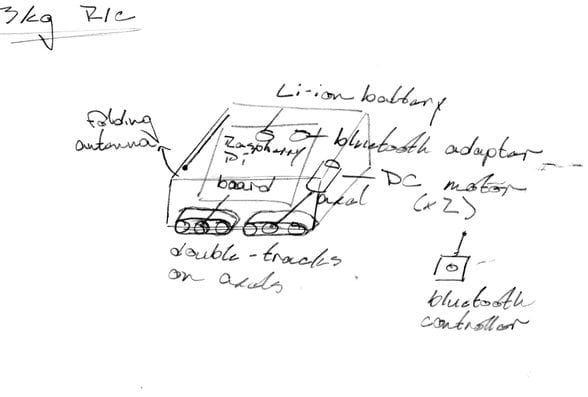 3kg R/C
Li-ion battery
folding
antenna
Raspberry
Pi
board
bluetooth adapter
DC motor
(x2)
axal
double-tracks
on axals
bluetooth
controller